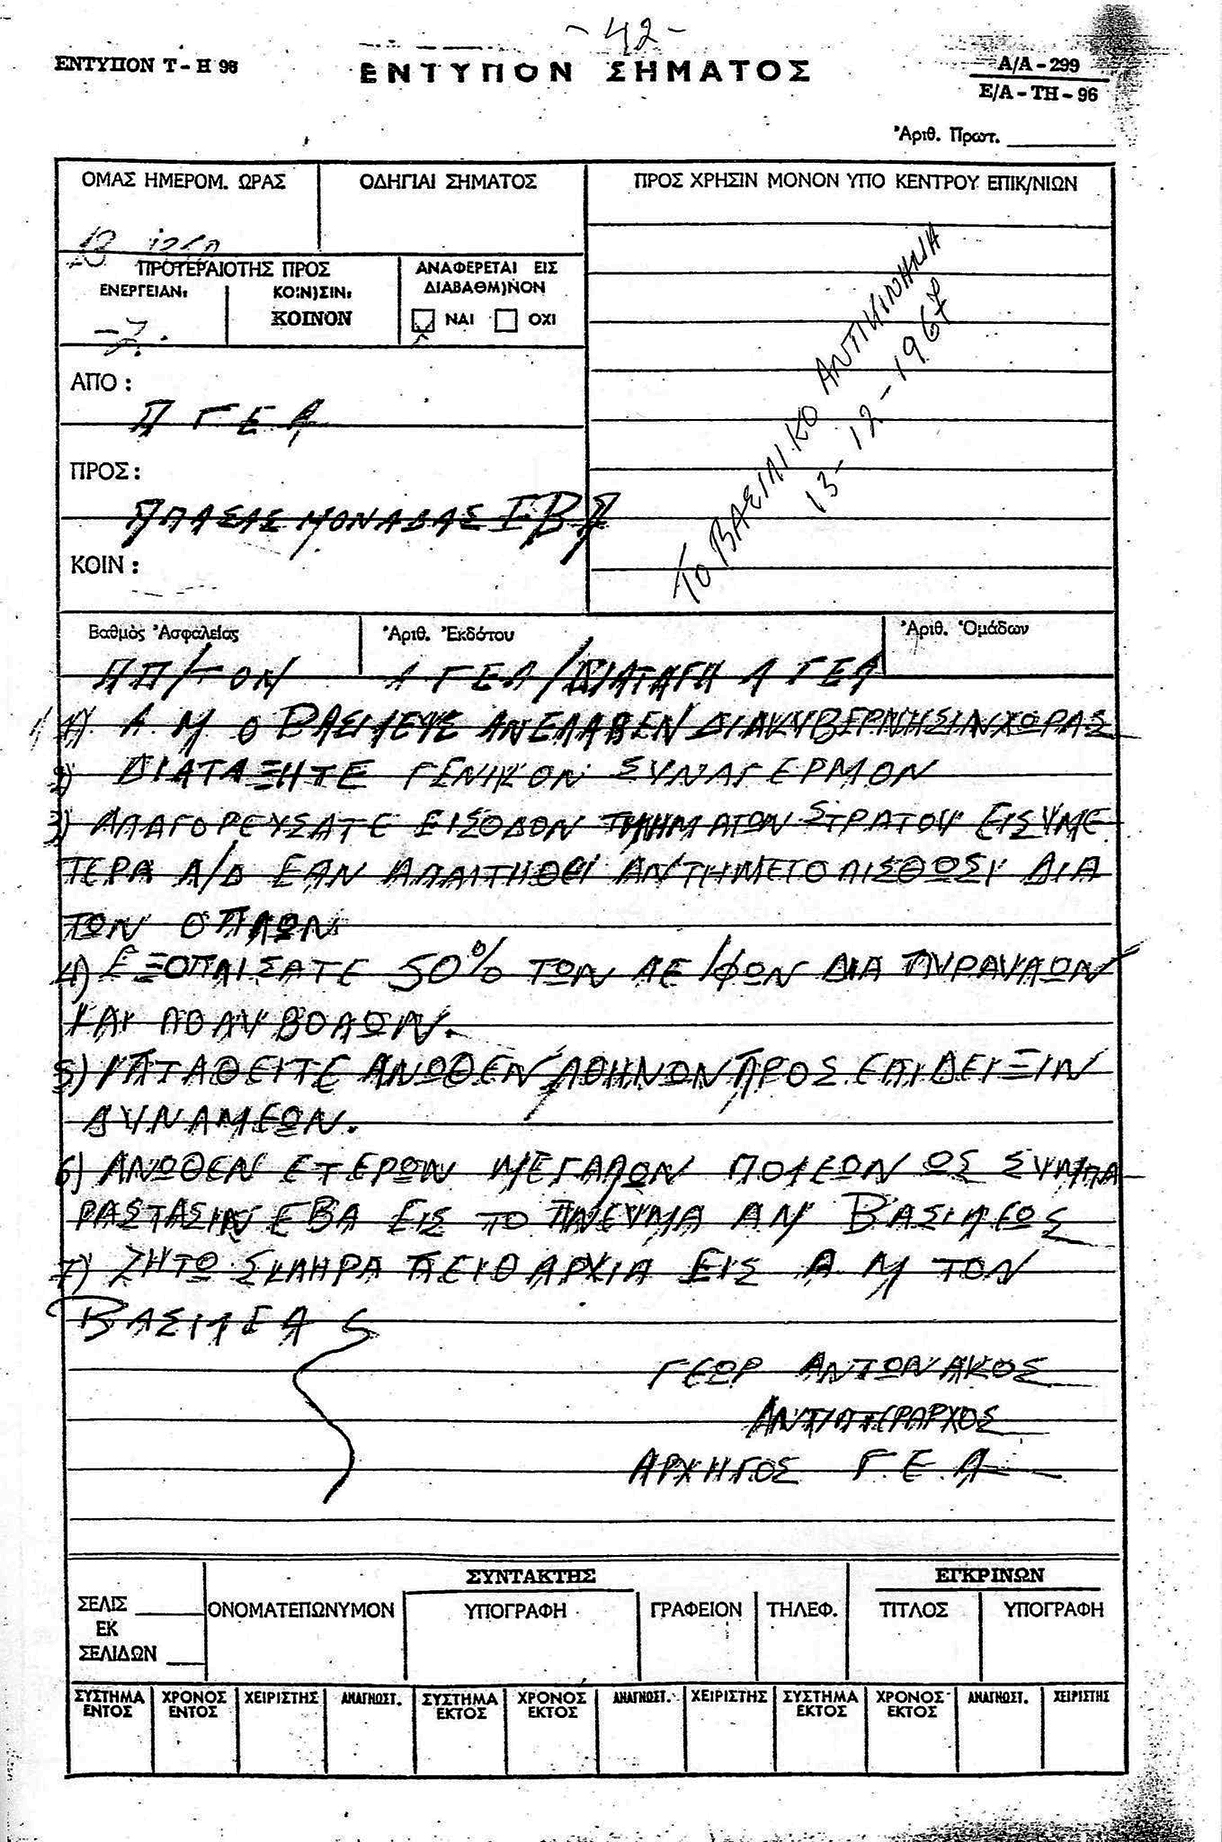 -42-
ΕΝΤΥΠΟΝ Τ-Η 96
ΕΝΤΥΠΟΝ ΣΗΜΑΤΟΣ
Α/Α-299
Ε/Α-ΤΗ-96
Ἀριθ. Πρωτ.
ΟΜΑΣ ΗΜΕΡΟΜ. ΩΡΑΣ
ΟΔΗΓΙΑΙ ΣΗΜΑΤΟΣ
ΠΡΟΣ ΧΡΗΣΙΝ ΜΟΝΟΝ ΥΠΟ ΚΕΝΤΡΟΥ ΕΠΙΚ/ΝΙΩΝ
ΠΡΟΤΕΡΑΙΟΤΗΣ ΠΡΟΣ
ΕΝΕΡΓΕΙΑΝ:
ΚΟΙΝ)ΣΙΝ:
ΚΟΙΝΟΝ
ΑΝΑΦΕΡΕΤΑΙ ΕΙΣ
ΔΙΑΒΑΘΜ)ΝΟΝ
ΝΑΙ ΟΧΙ
ΤΟ ΒΑΣΙΛΙΚΟ ΑΝΤΙΚΙΝΗΜΑ
13-12-1967
ΑΠΟ:
Π ΓΕΑ
ΠΡΟΣ:
ΠΠΑΣΑΣ ΜΟΝΑΔΑΣ ΕΒΑ
ΚΟΙΝ:
Βαθμὸς Ἀσφαλείας
Ἀριθ. Ἐκδότου
Ἀριθ. Ὁμάδων
ΑΓΕΑ/ΔΙΑΤΑΓΗ ΑΓΕΑ
1) Α. Μ Ο ΒΑΣΙΛΕΥΣ ΑΝΕΛΑΒΕΝ ΔΙΑΚΥΒΕΡΝΗΣΙΝ ΧΩΡΑΣ
2) ΔΙΑΤΑΞΗΤΕ ΓΕΝΙΚΟΝ ΣΥΝΑΓΕΡΜΟΝ
3) ΑΠΑΓΟΡΕΥΣΑΤΕ ΕΙΣΟΔΟΝ ΤΜΗΜΑΤΩΝ ΣΤΡΑΤΟΥ ΕΙΣ ΥΜΕ
ΤΕΡΑ Α/Δ ΕΑΝ ΑΠΑΙΤΗΘΕΙ ΑΝΤΗΜΕΤΟΠΙΣΘΩΣΙ ΔΙΑ
ΤΩΝ ΟΠΛΩΝ
4) ΕΞΟΠΛΙΣΑΤΕ 50% ΤΩΝ ΑΕ/ΦΩΝ ΔΙΑ ΠΥΡΑΥΛΩΝ
ΚΑΙ ΠΟΛΥΒΟΛΩΝ.
5) ΚΑΤΑΘΕΙΤΕ ΑΝΩΘΕΝ ΑΘΗΝΩΝ ΠΡΟΣ ΕΠΙΔΕΙΞΙΝ
ΔΥΝΑΜΕΩΝ.
6) ΑΝΩΘΕΝ ΕΤΕΡΩΝ ΜΕΓΑΛΩΝ ΠΟΛΕΩΝ ΩΣ ΣΥΜΠΑ
ΡΑΣΤΑΣΙΝ ΕΒΑ ΕΙΣ ΤΟ ΠΝΕΥΜΑ ΑΜ ΒΑΣΙΛΕΩΣ
7) ΖΗΤΩ ΣΚΛΗΡΑ ΠΕΙΘΑΡΧΙΑ ΕΙΣ Α Μ ΤΟΝ
ΒΑΣΙΛΕΑ
ΓΕΩΡ ΑΝΤΩΝΑΚΟΣ
ΑΝΤΙΠΤΕΡΑΡΧΟΣ
ΑΡΧΗΓΟΣ Γ.Ε.Α
ΣΕΛΙΣ
ΕΚ
ΣΕΛΙΔΩΝ
ΣΥΝΤΑΚΤΗΣ
ΕΓΚΡΙΝΩΝ
ΟΝΟΜΑΤΕΠΩΝΥΜΟΝ ΥΠΟΓΡΑΦΗ ΓΡΑΦΕΙΟΝ ΤΗΛΕΦ. ΤΙΤΛΟΣ ΥΠΟΓΡΑΦΗ
ΣΥΣΤΗΜΑ ΧΡΟΝΟΣ ΧΕΙΡΙΣΤΗΣ ΑΝΑΓΝΩΣΤ. ΣΥΣΤΗΜΑ ΧΡΟΝΟΣ ΑΝΑΓΝΩΣΤ. ΧΕΙΡΙΣΤΗΣ ΣΥΣΤΗΜΑ ΧΡΟΝΟΣ ΑΝΑΓΝΩΣΤ. ΧΕΙΡΙΣΤΗΣ
ΕΝΤΟΣ ΕΝΤΟΣ ΕΚΤΟΣ ΕΚΤΟΣ ΕΚΤΟΣ ΕΚΤΟΣ